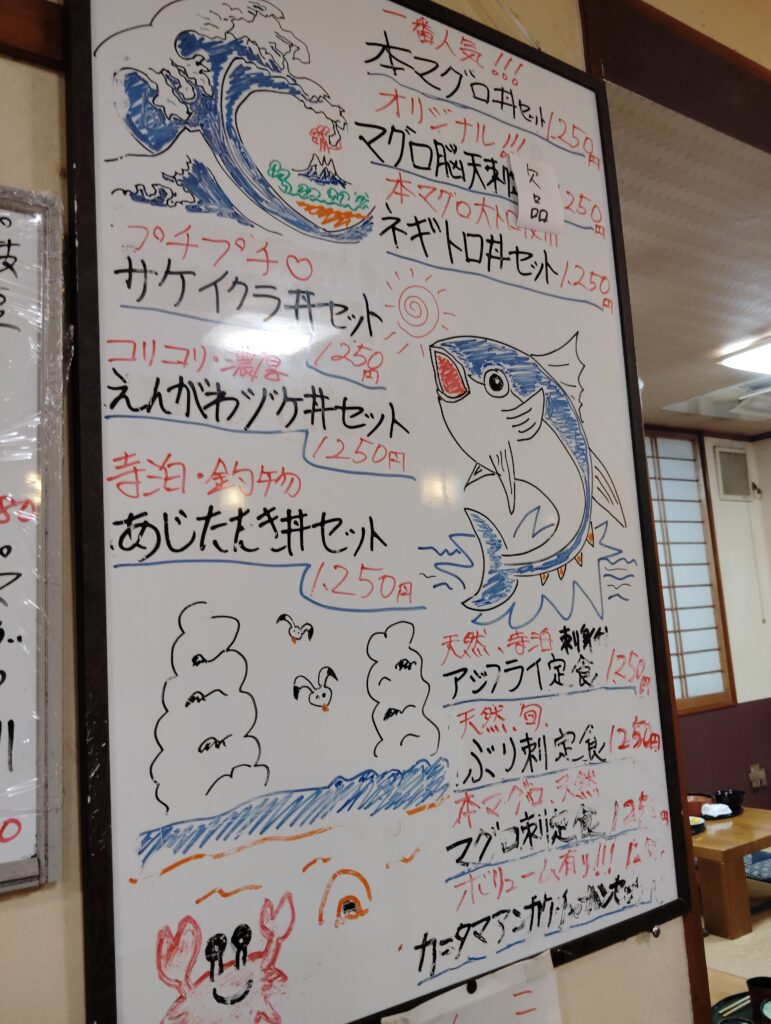 一番人気!!!
本マグロ丼セット 1250円
オリジナル!!!
マグロ脳天刺
欠品
1250
本マグロ大トロ使用
ネギトロ丼セット 1.250円
プチプチ♡
サケイクラ丼セット
1250円
コリコリ・濃厚
えんがわヅケ丼セット
1250円
寺泊・釣物
あじたたき丼セット
1.250円
天然、寺泊 刺身付
アジフライ定食 1250円
天然、旬、
ぶり刺定食 1250円
本マグロ 天然
マグロ刺定食
ボリューム有り!!!
カニタマアンカケ